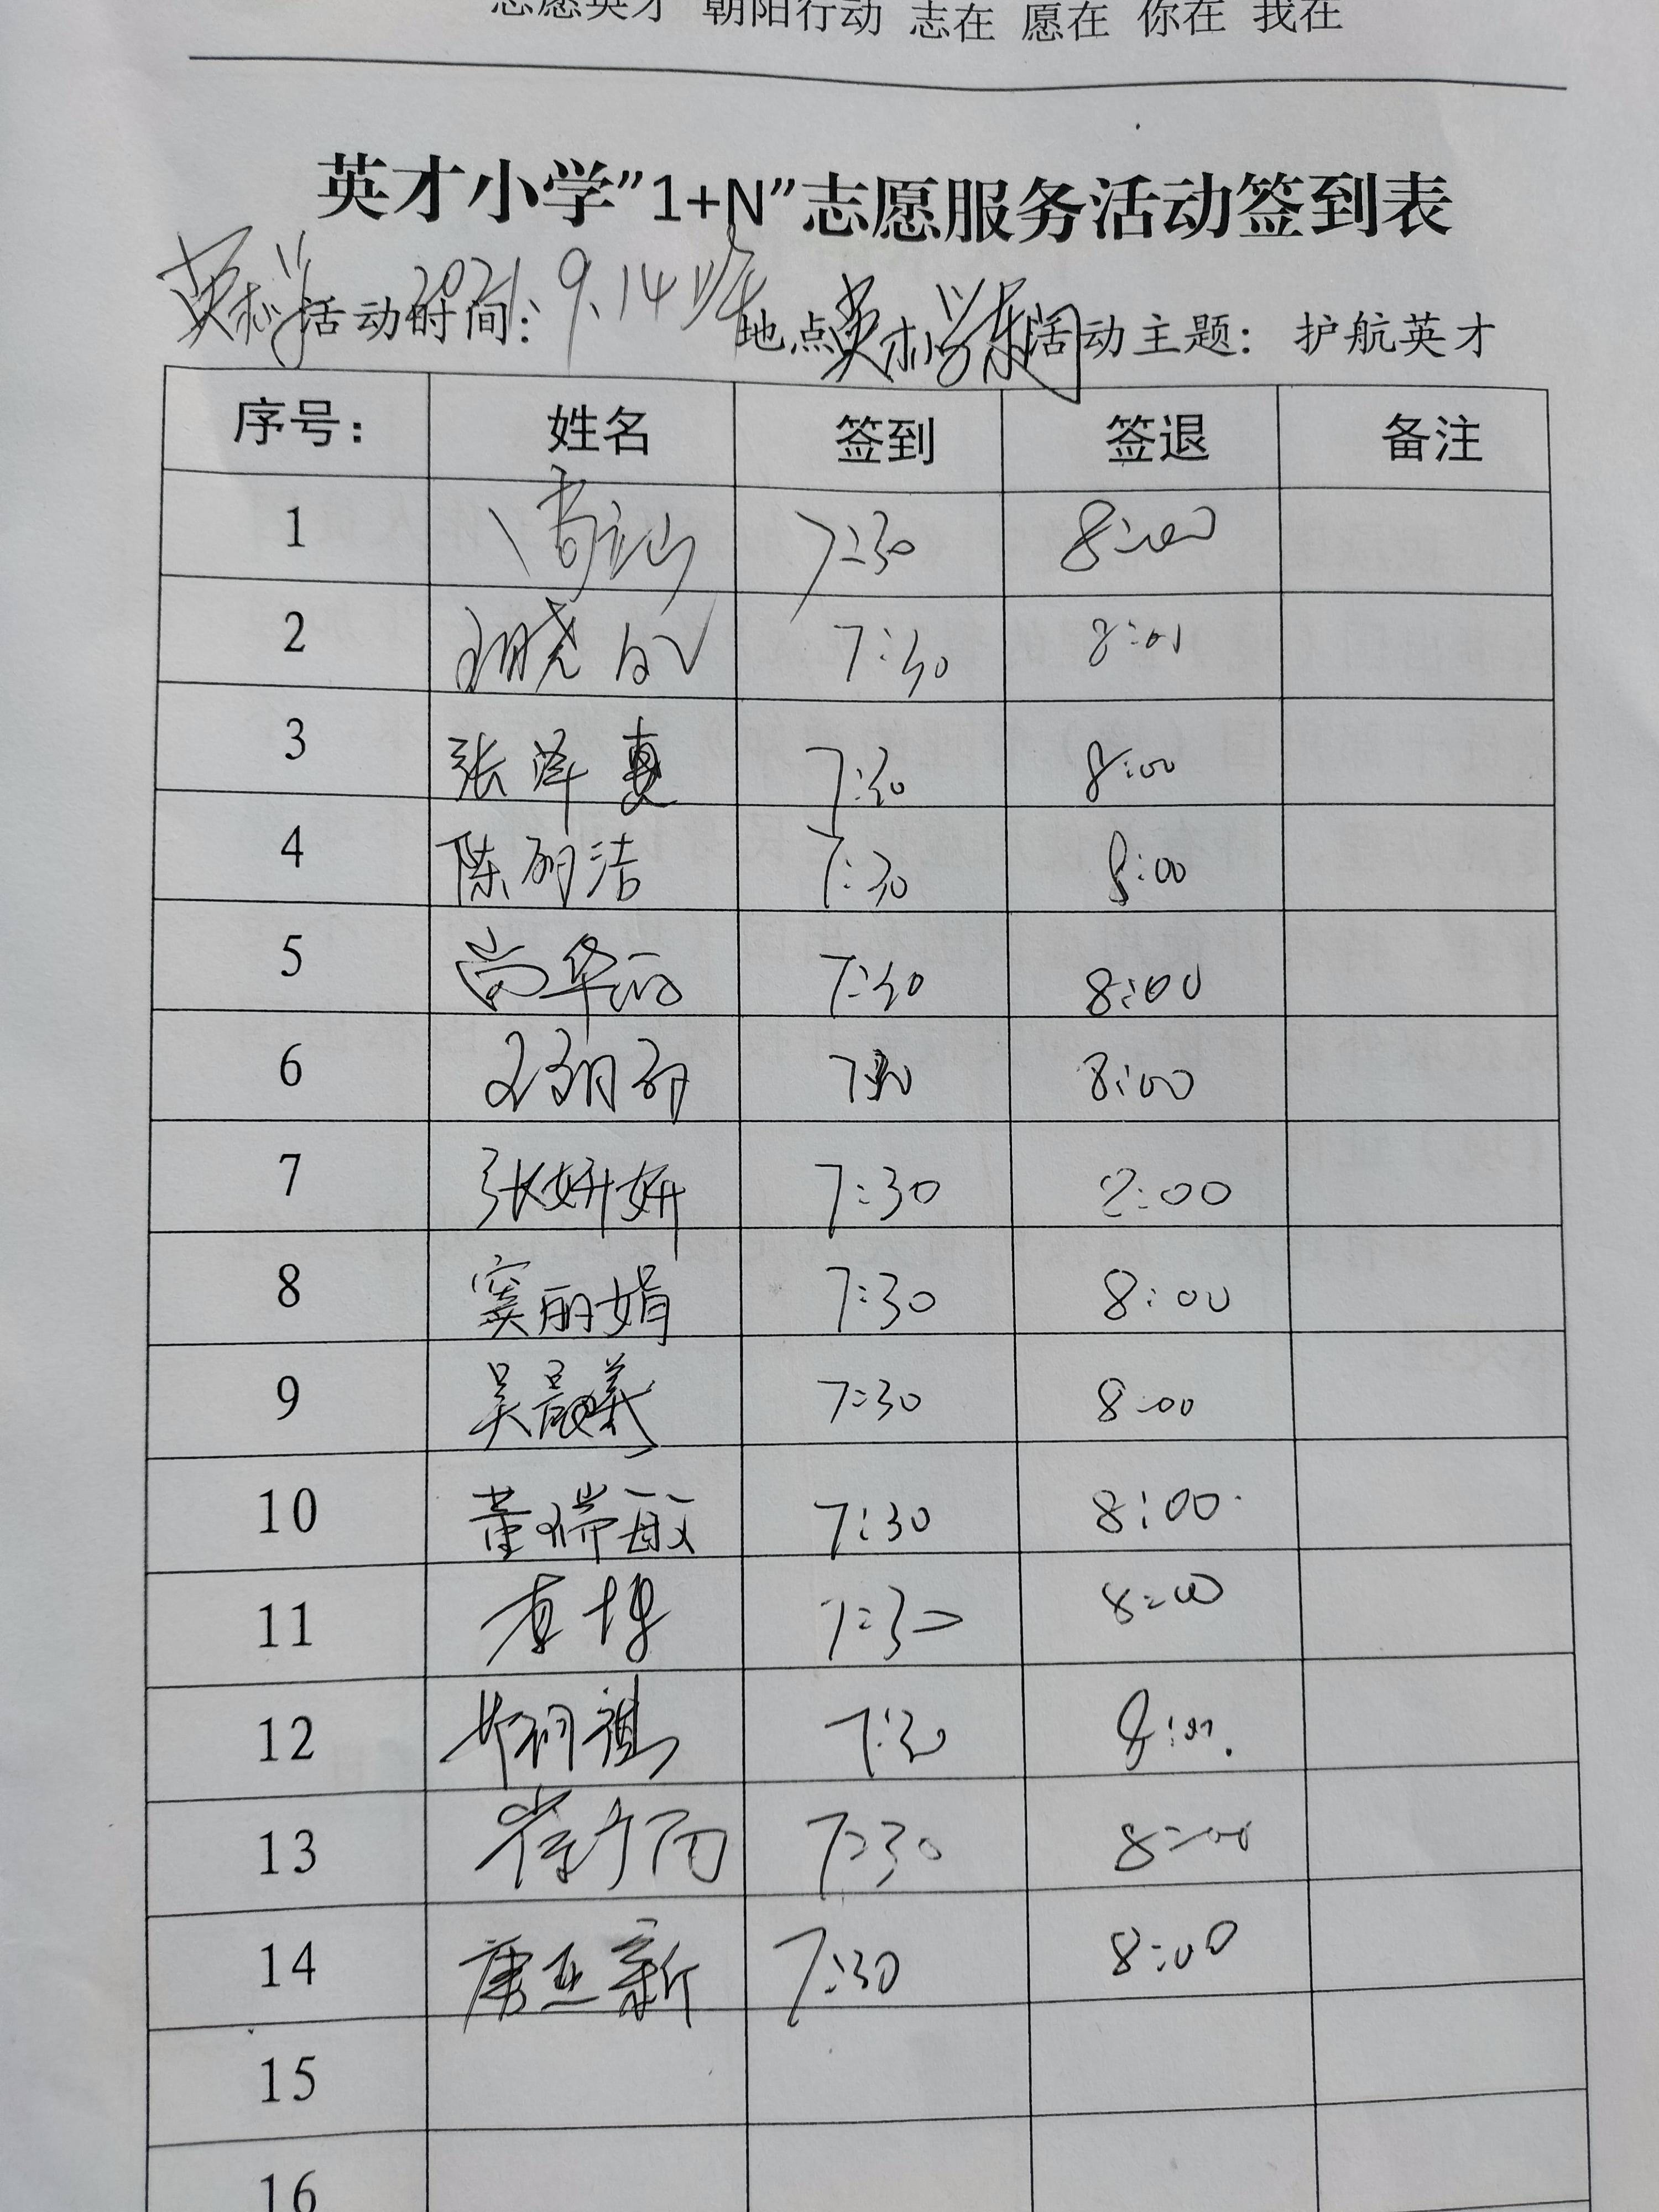 志愿英才 朝阳行动 志在 愿在 你在 我在
英才小学”1+N”志愿服务活动签到表
英才小学 活动时间: 2021.9.14 地点 英才小学东门 活动主题: 护航英才
序号: 姓名 签到 签退 备注
1 7:30 8:00
2 7:30 8:00
3 张泽惠 7:30 8:00
4 陈丽洁 7:30 8:00
5 尚华丽 7:30 8:00
6 王翔丽 7:30 8:00
7 张妍妍 7:30 8:00
8 窦丽娟 7:30 8:00
9 吴晨曦 7:30 8:00
10 董瑞敏 7:30 8:00
11 7:30 8:00
12 7:30 8:00
13 7:30 8:00
14 唐亚新 7:30 8:00
15
16